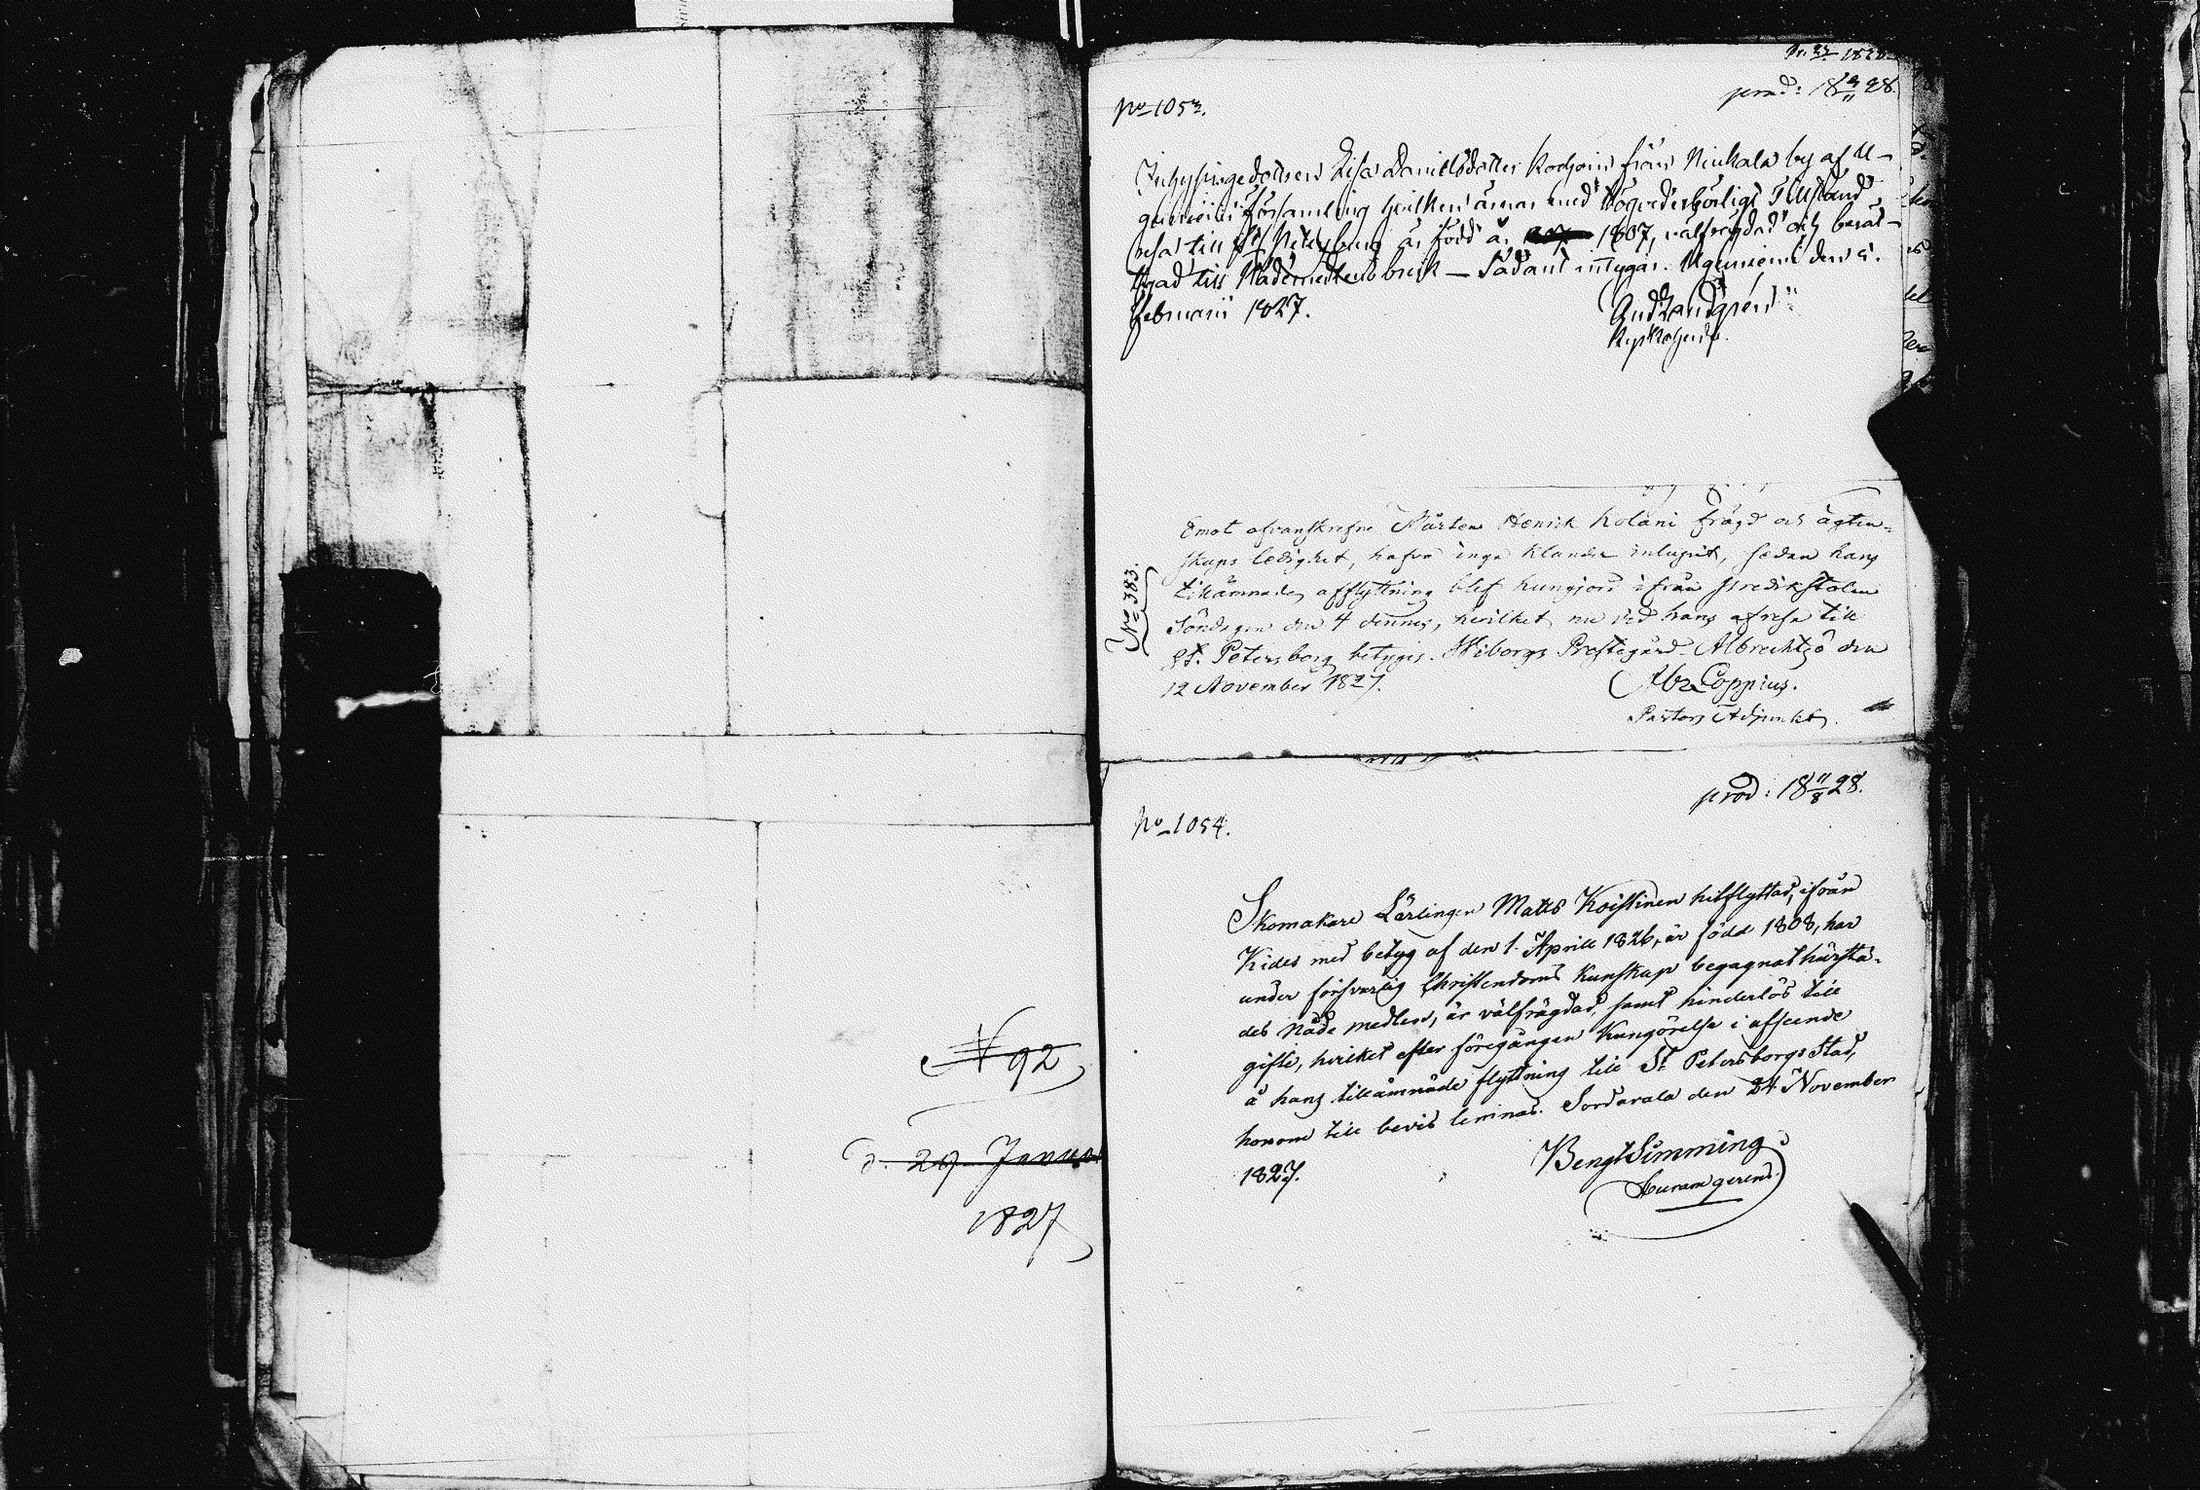 N 92
d. 29 Januar
1827
prod: 18 9/11 28.
No 1053.
Inhysingedottren Lisa Danielsdotter Korhoin från Niukala by af U-
guniemi församling hvilken ärnar med Högvederbörligt Tillstånd
resa till St Petersburg är född år 1807, välfrägdad och berät-
tigad till Nådemedlens bruk — Sådant intygar. Uguniemi den 5.
februarii 1827.
And Landgren
Kyrkoherde.
No 383.
Emot ofvanskrefne Mårten Henrik Kolani frägd och ägten-
skaps ledighet, hafva inga klander inlupit, sedan hans
tillämnade afflyttning blef kungjord ifrån Predikstolen
Söndagen den 4 dennes, hvilket nu vid hans afresa till
St. Petersborg betygis. Wiborgs Prestegård Albrechtsö den
12 November 1827.
Abr Coppius.
Pastors Adjunkt.
prod: 18 11/8 28.
No 1054.
Skomakare Lärlingen Matts Koistinen hitflyttad, ifrån
Kides med betyg af den 1. Aprill 1826, är född 1808, har
under försvarlig Christendoms Kunskap begagnat härsta-
des Nåde medlen, är välfrägdad, samt hinderlös till
gifte, hvilket efter föregången Kungörelse i afseende
å hans tillämnade flyttning till St Petersborgs Stad,
honom till bevis lemnas. Sordavala den 24 November
1827.
Bengt Simming
Curam gerens.